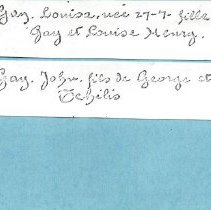 Gay, Louisa, née 27-7- fille
Gay et Louise Henry.
Gay, John, fils de George et